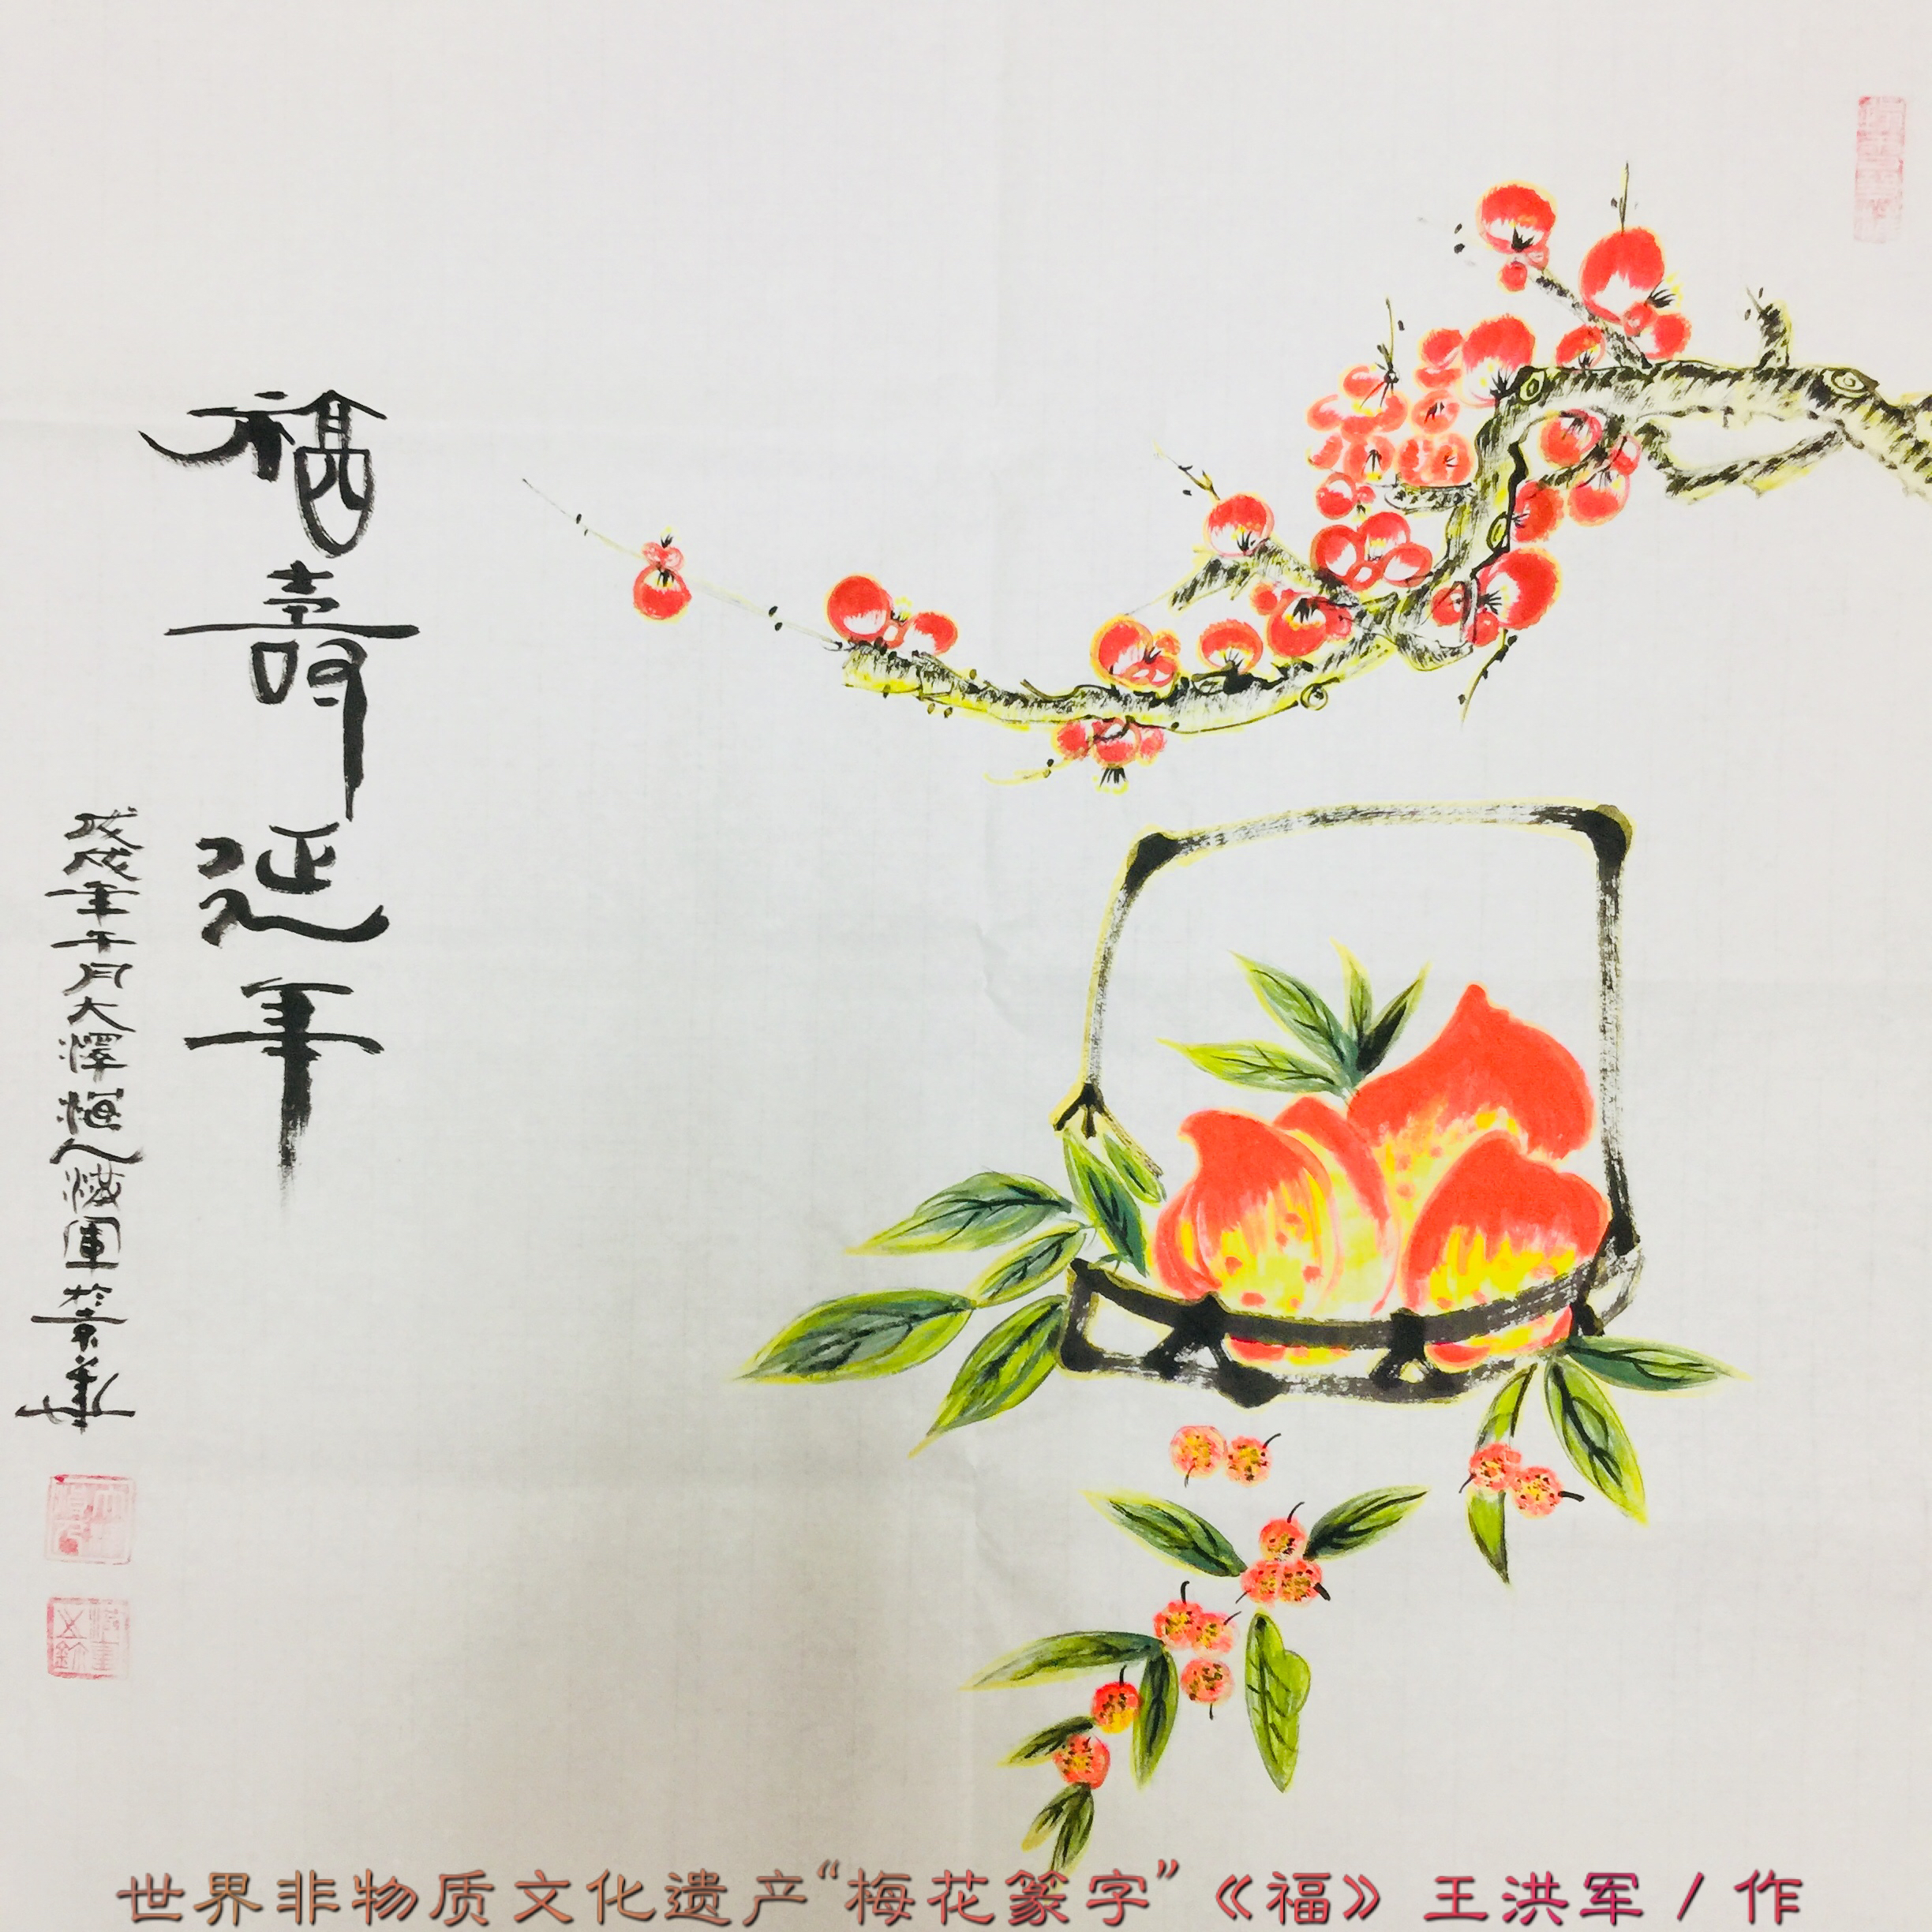 福壽延年
戊戌年午月大澤梅人洪軍於京華
世界非物质文化遗产“梅花篆字”《福》王洪军/作